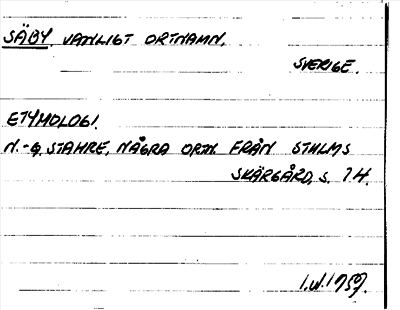 SÄBY. VANLIGT ORTNAMN.
SVERIGE.
ETYMOLOGI.
N.-G. STAHRE, NÅGRA ORTN. FRÅN STHLMS
SKÄRGÅRD, S. 74.
I.W. 1959.